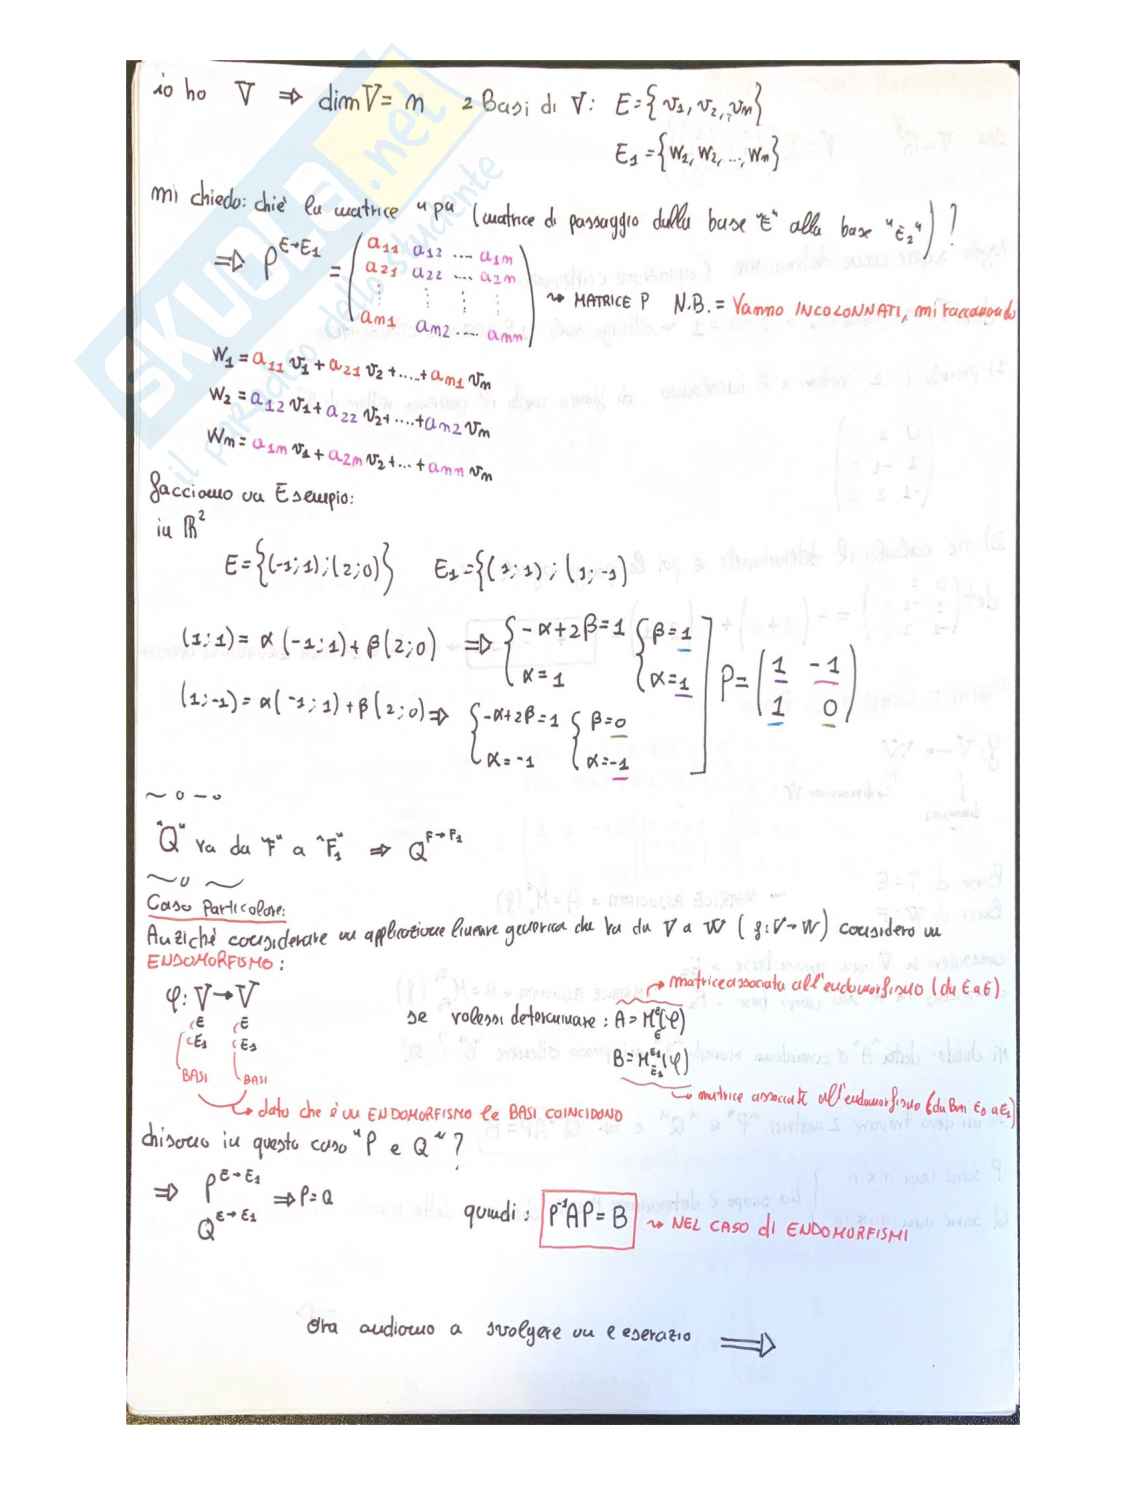 SKUOLA.net
il paradiso dello studente
io ho V ⇒ dim V = n 2 Basi di V: E={v1, v2,, vn}
E1={w1, w2, ..., wn}
mi chiedo: chi è la matrice "P" (matrice di passaggio dalla base "E" alla base "E1") ?
⇒ P^{E→E1} = (a11 a12 .... a1n
a21 a22 .... a2n
⋮ ⋮ ⋮ ⋮
an1 an2 .... ann) ↝ MATRICE P N.B. = Vanno INCOLONNATI, mi raccomando
w1 = a11 v1 + a21 v2 + .... + an1 vn
w2 = a12 v1 + a22 v2 + .... + an2 vn
wn = a1n v1 + a2n v2 + ... + ann vn
facciamo un Esempio:
in ℝ²
E={(-1;1);(2;0)} E1={(1;1);(1;-1)
(1;1) = α(-1;1)+β(2;0) ⇒ {-α+2β=1 {β=1
α=1 α=1
(1;-1) = α(-1;1)+β(2;0) ⇒ {-α+2β=1 {β=0
α=-1 α=-1
P = (1 -1
1 0)
~ o - o
"Q" va da "F" a "F1" ⇒ Q^{F→F1}
~ o ~
Caso Particolare:
Anziché considerare un applicazione lineare generica che va da V a W (f:V→W) considero un
ENDOMORFISMO:
φ: V→V
E E
E1 E1
BASI BASI
→ dato che è un ENDOMORFISMO le BASI COINCIDONO
→ matrice associata all'endomorfismo (da E a E)
se volessi determinare: A = M_E^E(φ)
B = M_{E1}^{E1}(φ)
→ matrice associata all'endomorfismo (da Basi E1 a E1)
chi sono in questo caso "P e Q" ?
⇒ P^{E→E1}
Q^{E→E1} ⇒ P=Q
quindi: P⁻¹AP = B ↝ NEL CASO di ENDOMORFISMI
Ora andiamo a svolgere un esercizio ⇒